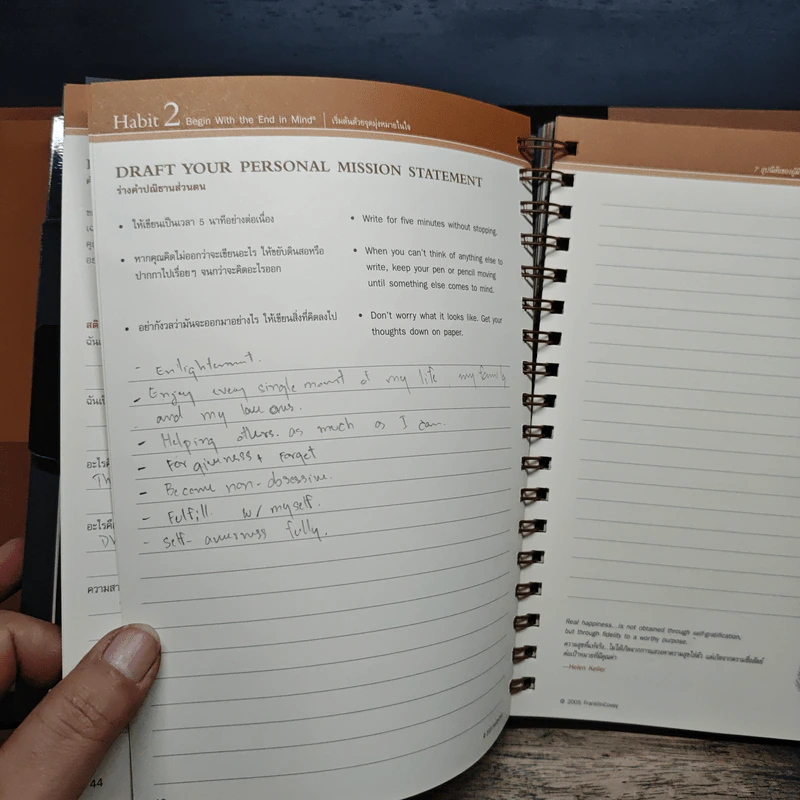 Habit 2 Begin With the End in Mind® | เริ่มต้นด้วยจุดมุ่งหมายในใจ
DRAFT YOUR PERSONAL MISSION STATEMENT
ร่างคำปณิธานส่วนตน
• ให้เขียนเป็นเวลา 5 นาทีอย่างต่อเนื่อง
• หากคุณคิดไม่ออกว่าจะเขียนอะไร ให้ขยับดินสอหรือ
ปากกาไปเรื่อยๆ จนกว่าจะคิดอะไรออก
• อย่ากังวลว่ามันจะออกมาอย่างไร ให้เขียนสิ่งที่คิดลงไป
• Write for five minutes without stopping.
• When you can't think of anything else to
write, keep your pen or pencil moving
until something else comes to mind.
• Don't worry what it looks like. Get your
thoughts down on paper.
- Enlightenment.
- Enjoy every single moment of my life my family
and my love ones.
- Helping others. as much as I can.
- Forgiveness + Forget
- Become non-obsessive.
- Fulfill w/ myself.
- Self-awareness fully.
อะไร
ความสา
44
Real happiness...is not obtained through self-gratification,
but through fidelity to a worthy purpose.
ความสุขที่แท้จริง
—Helen Keller
© 2005 FranklinCovey